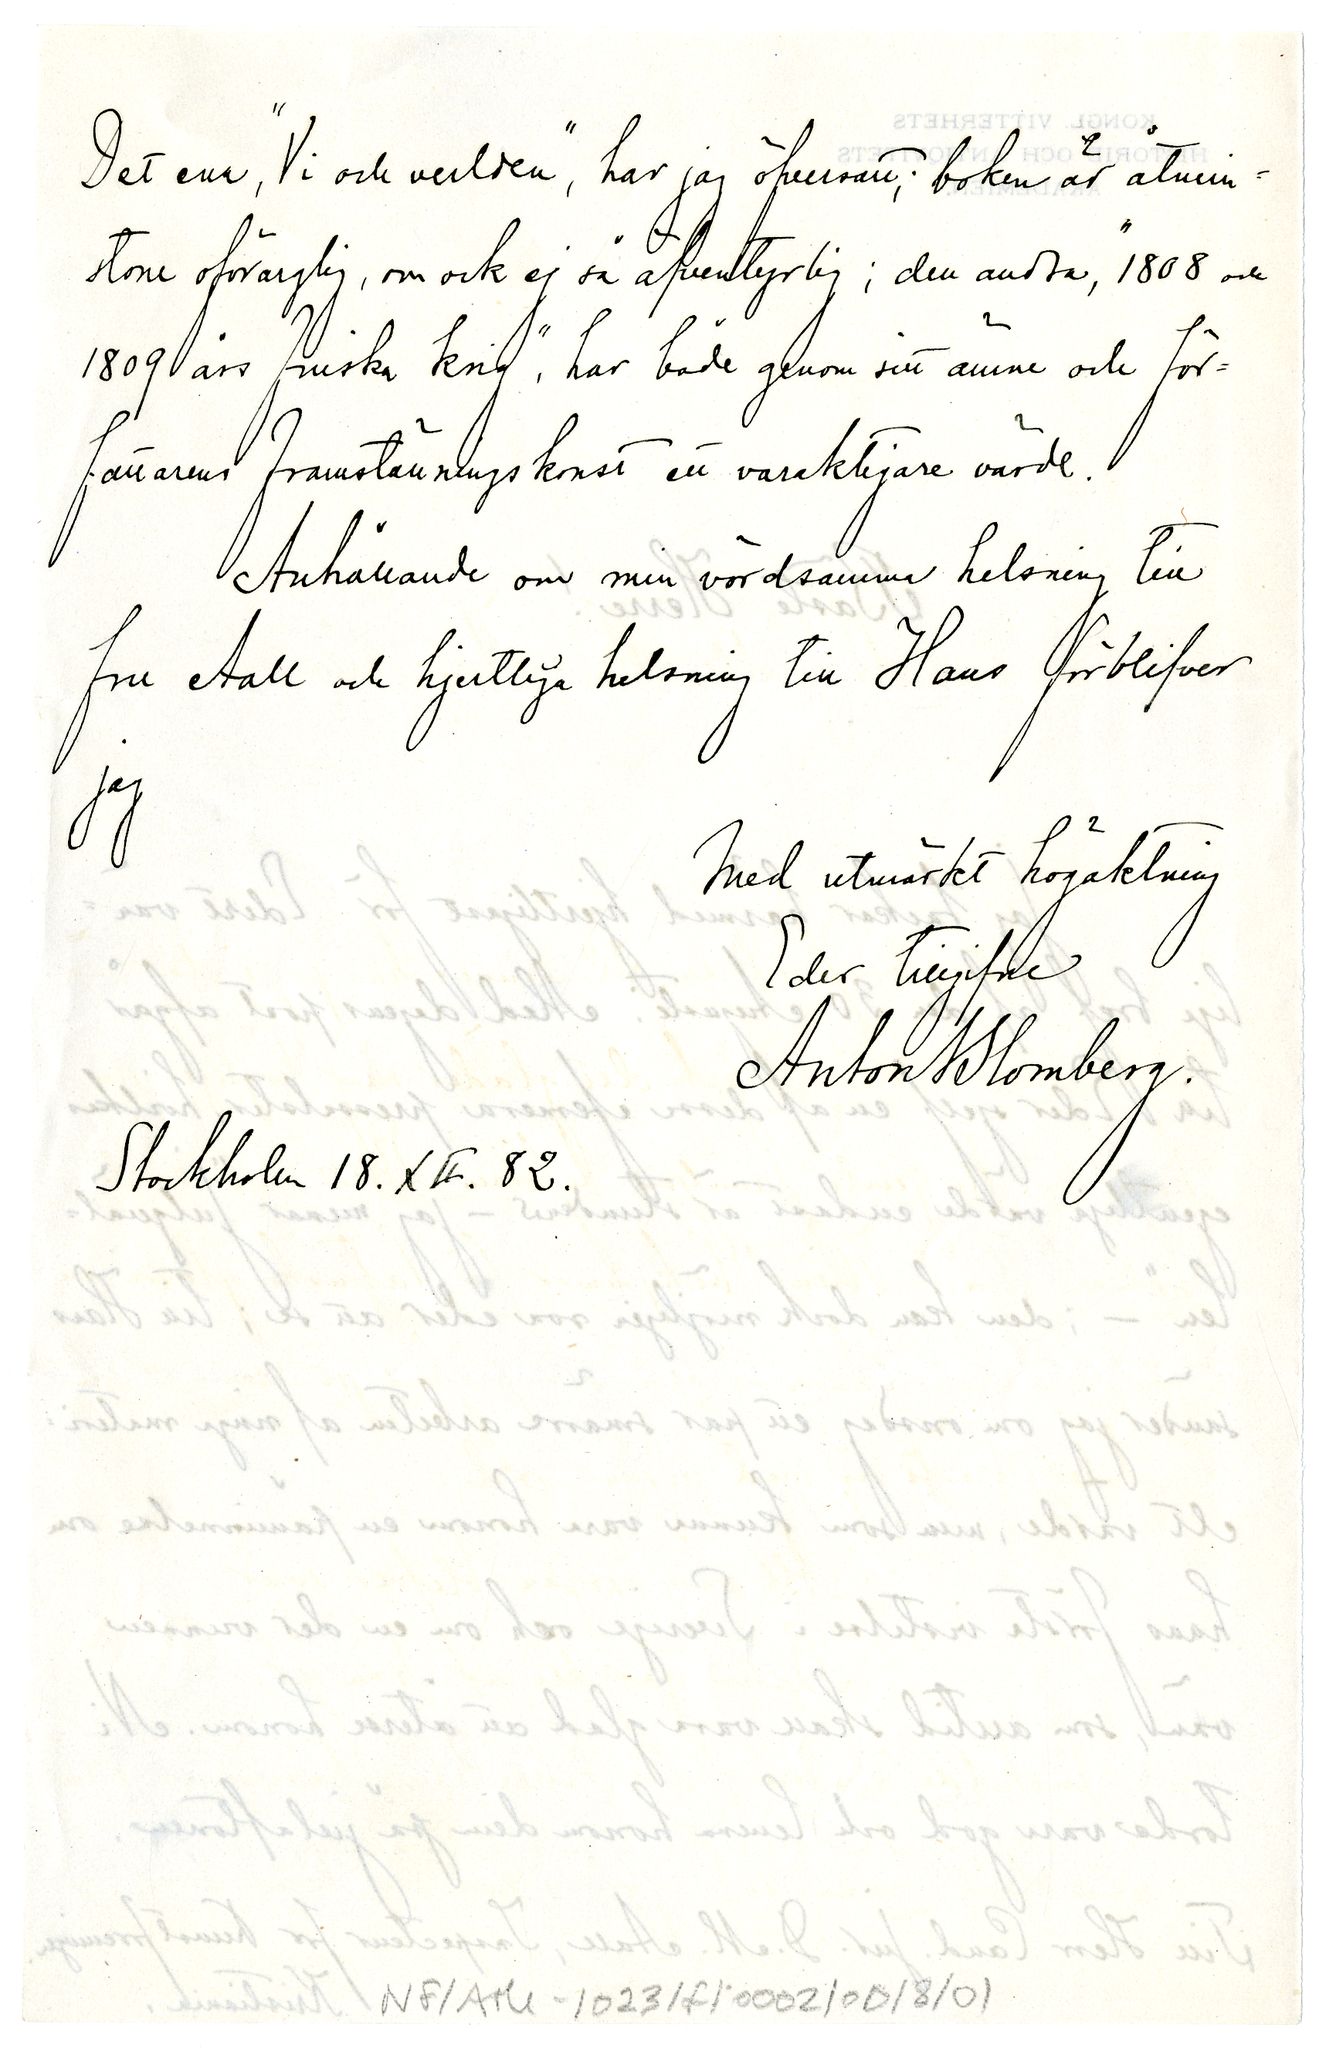 Det ena, "Vi och verlden", har jag öfversatt; boken är åtmin=
stone oförarglig, om ock ej så äfventyrlig; den andra, "1808 och
1809 års finska krig", har både genom sitt ämne och för=
fattarens framställningskonst ett varaktigare värde.
Anhållande om min vördsamma helsning till
fru Aall och hjertliga helsning till Hans förblifver
jag
Med utmärkt högaktning
Eder tillgifne
Anton Blomberg.
Stockholm 18. XII. 82.
NF/Ark-1023/F/0002/00/8/01